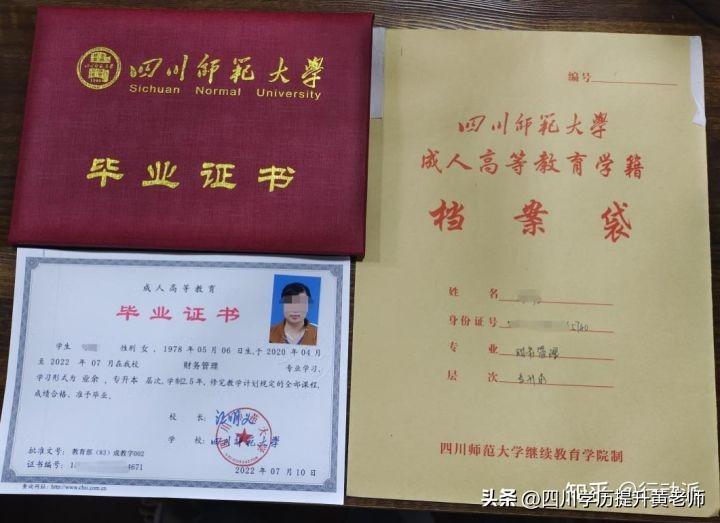 四川师范大学
Sichuan Normal University
毕业证书
成人高等教育
毕业证书
学生 性别 女，1978 年 05 月 06 日生，于 2020 年 04 月
至 2022 年 07 月在我校 财务管理 专业学习，
学习形式为 业余，专升本 层次，学制2.5年，修完教学计划规定的全部课程，
成绩合格，准予毕业。
校 长：
学 校：四川师范大学
批准文号：教育部（83）成教字002
证书编号：1 4671
2022 年 07 月 10 日
查询网址：http://www.chsi.com.cn
编号
四川师范大学
成人高等教育学籍
档案袋
姓 名
身份证号
专 业 财务管理
层 次 专升本
四川师范大学继续教育学院制
知乎 @行动派
头条 @四川学历提升黄老师